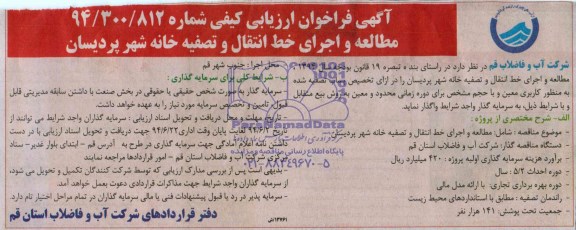 آگهی فراخوان ارزیابی کیفی شماره ۹۴/۳۰۰/۸۱۲
مطالعه و اجرای خط انتقال و تصفیه خانه شهر پردیسان
شرکت آب و فاضلاب قم در نظر دارد در راستای بند ه تبصره ۱۹ قانون بودجه
مطالعه و اجرای خط انتقال و تصفیه خانه شهر پردیسان را در ازای تخصیص پساب تصفیه شده
به منظور کاربری معین و با حجم مشخص برای دوره زمانی محدود و معین به روش بیع متقابل
و با شرایط ذیل، به سرمایه گذار واجد شرایط واگذار نماید.
الف - شرح مختصری از پروژه :
- موضوع مناقصه : شامل: مطالعه و اجرای خط انتقال و تصفیه خانه شهر پردیسان
- دستگاه مناقصه گزار: شرکت آب و فاضلاب استان قم
- برآورد هزینه سرمایه گذاری اولیه پروژه : ۴۲۰ میلیارد ریال
- دوره احداث ۵/۲ سال
- دوره بهره برداری تجاری با ارائه مدل مالی
- راندمان تصفیه : مطابق با استانداردهای محیط زیست
- جمعیت تحت پوشش: ۱۴۱ هزار نفر
- محل اجرا: جنوب شهر قم
ب - شرایط کلی برای سرمایه گذاری :
- سرمایه گذار به صورت شخص حقیقی یا حقوقی در بخش صنعت با داشتن سابقه مدیریتی قابل
قبول، تأمین و تخصیص سرمایه مورد نیاز را به عهده خواهد داشت.
- تاریخ مهلت و محل دریافت و تحویل اسناد ارزیابی : سرمایه گذاران واجد شرایط می توانند از
تاریخ ۹۴/۶/۲ لغایت پایان وقت اداری ۹۴/۶/۲۲ جهت دریافت و تحویل اسناد ارزیابی با در دست
داشتن نامه اعلام آمادگی جهت سرمایه گذاری در طرح به آدرس قم - ابتدای بلوار غدیر - ستاد
مرکزی شرکت آب و فاضلاب استان قم - امور قراردادها مراجعه نمایند
- بدیهی است پس از بررسی مدارک ارزیابی که توسط شرکت کنندگان تکمیل و تحویل می شود،
از سرمایه گذاران واجد شرایط جهت مذاکرات قراردادی دعوت بعمل خواهد آمد.
- سرمایه پذیر در رد یا قبول پیشنهادات فنی یا مالی سرمایه گذاران در تمام مراحل اختیار تام دارد.
دفتر قراردادهای شرکت آب و فاضلاب استان قم
ParsNamadData
پایگاه اطلاع رسانی مناقصه و مزایده
۰۲۱-۸۸۳۴۹۶۷۰-۵